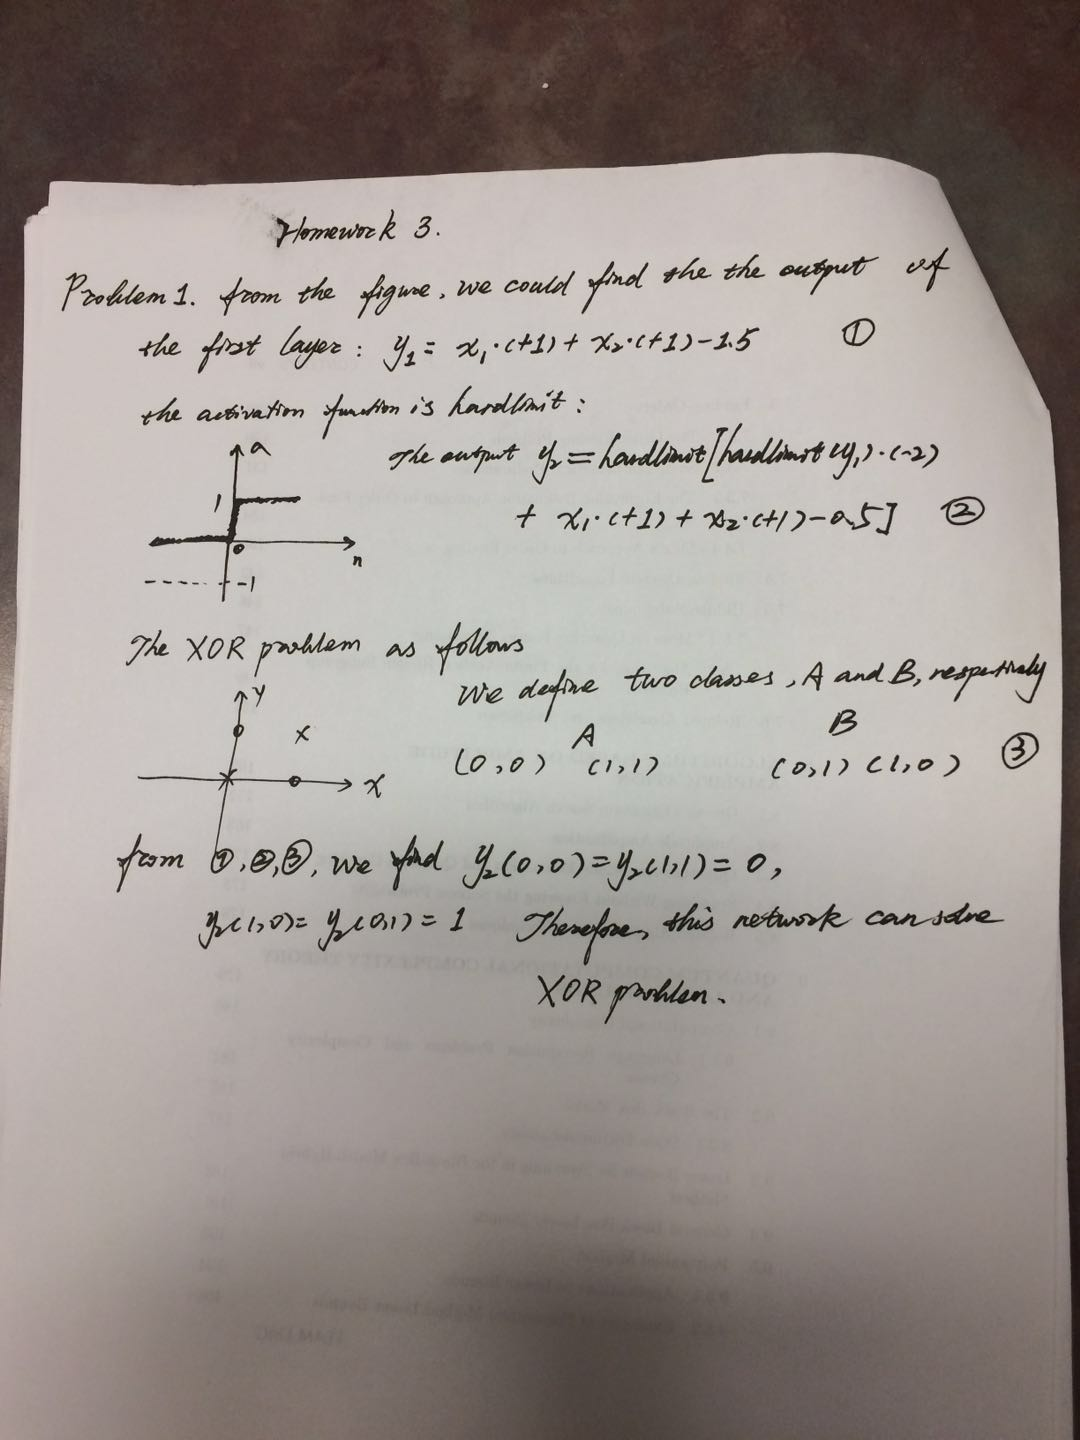 Homework 3.
Problem 1. from the figure, we could find the the output of
the first layer: y₁ = x₁·(+1) + x₂·(+1) - 1.5 ①
the activation function is hardlimit:
a
The output y₂ = hardlimit[hardlimit(y₁)·(-2)
1
+ x₁·(+1) + x₂·(+1) - 0.5] ②
0
n
-1
The XOR problem as follows
We define two classes, A and B, respectively
y
A B
(0,0) (1,1) (0,1) (1,0) ③
x
from ①,②,③, we find y₂(0,0) = y₂(1,1) = 0,
y₂(1,0) = y₂(0,1) = 1 Therefore, this network can solve
XOR problem.